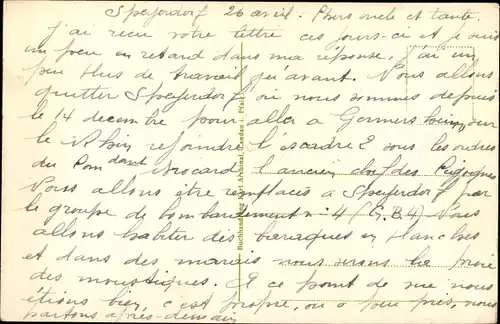 Speyerdorf 26 avril. Chers oncle et tante.
J'ai recu votre lettre ces jours-ci et je suis
un peu en retard dans ma réponse, j'ai un
peu plus de travail qu'avant. Nous allons
quitter Speyerdorf où nous sommes depuis
le 14 decembre pour aller a Germersheim, sur
le Rhin rejoindre l'escadre 2 sous les ordres
du Comdant Brocard l'ancien chef des Cigognes
Nous allons être remplacés a Speyerdorf par
le groupe de bombardement n° 4 (G.B.4) Nous
allons habiter des baraques en planches
et dans des marais nous serons la proie
des moustiques. A ce point de vue nous
étions bien, c'est propre, ou a peu près, nous
partons après-demain
Buchhandlung Karl Archinal, Landau i. Pfalz